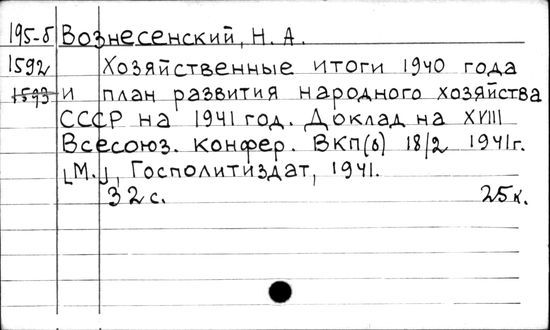 195-5 Вознесенский, Н. А.
1592 Хозяйственные итоги 1940 года
1593 и план развития народного хозяйства
СССР на 1941 год. Доклад на XVIII
Всесоюз. конфер. ВКП(б) 18/2 1941г.
[М.], Госполитиздат, 1941.
32 с. 25 к.